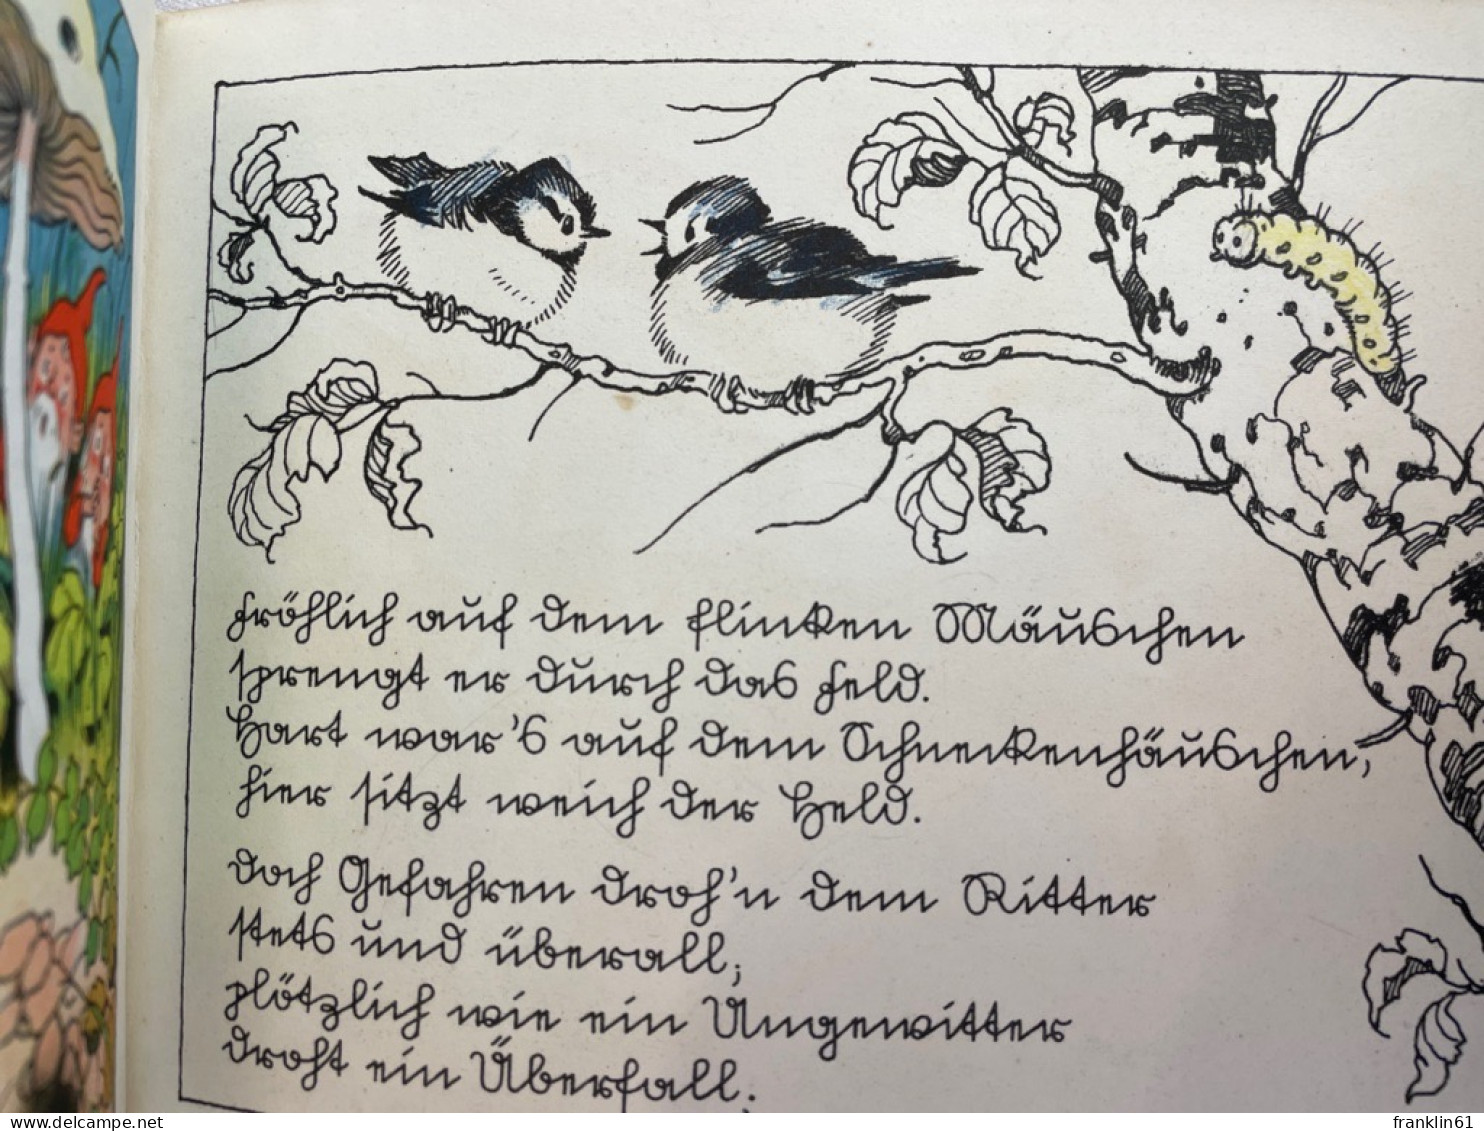 Fröhlich auf dem flinken Mäuschen
sprengt er durch das Feld.
Hart war's auf dem Schneckenhäuschen,
hier sitzt weich der Held.
Doch Gefahren droh'n dem Ritter
stets und überall;
plötzlich wie ein Ungewitter
droht ein Überfall.
www.delcampe.net
franklin61